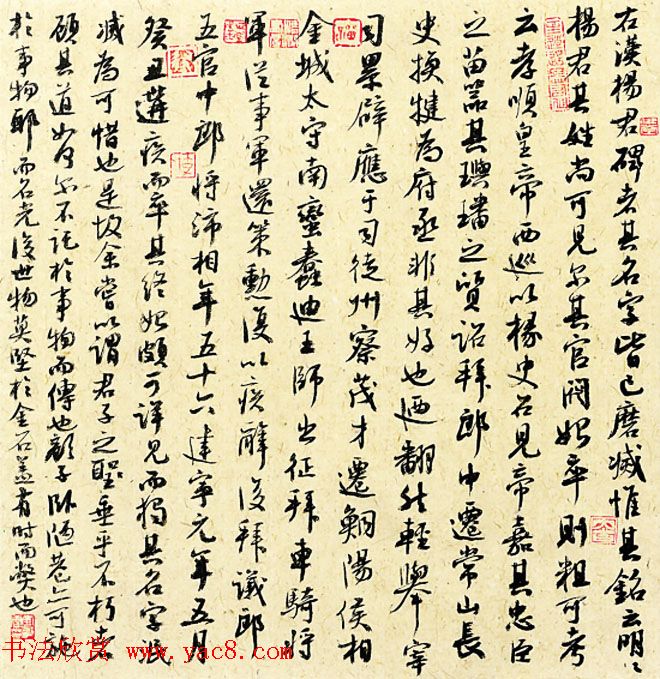 右漢楊君碑者其名字皆已磨滅惟其銘云明明
楊君其姓尚可見尔其官閥始卒則粗可考
云孝順皇帝西巡以掾史召見帝嘉其忠臣
之苗器其璵璠之質詔拜郎中遷常山長
史換犍為府丞非其好也迺翻然輕舉宰
司累辟應于司徒州察茂才遷鮦陽侯相
金城太守南蠻蠢迪王師出征拜車騎將
軍從事軍還策勳復以疾辭後拜議郎
五官中郎將沛相年五十六建寧元年五月
癸丑遘疾而卒其終始頗可詳見而獨其名字泯
滅為可惜也是故余嘗以謂君子之聖垂乎不朽者
顧其道如何尔不託於事物而傳也顏子臥陋巷亦可施
於事物耶而名光後世物莫堅於金石蓋有時而弊也
书法欣赏 www.yac8.com